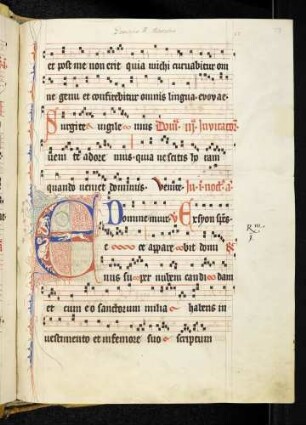 et post me non erit quia michi curuabitur om
ne genu et confitebitur omnis lingua euouae
Surgite uigile mus Dom. iij. Inuitator.
ueni te adore mus quia nescitis ho ram
quando ueniet dominus Venite In. i. noct. a.
Domine in uir Ex syon spēs
Ecce appare bit domi
nus su per nubem candi dam
et cum eo sanctorum milia habens in
uestimento et in femore suo scriptum